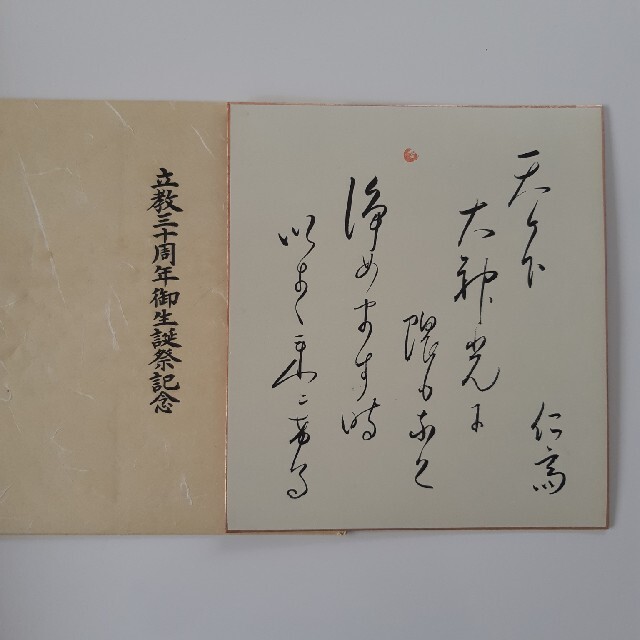 天ヶ下
仁斎
大神光に
隈もなく
浄めます時
いまし来にける
立教三十周年御生誕祭記念